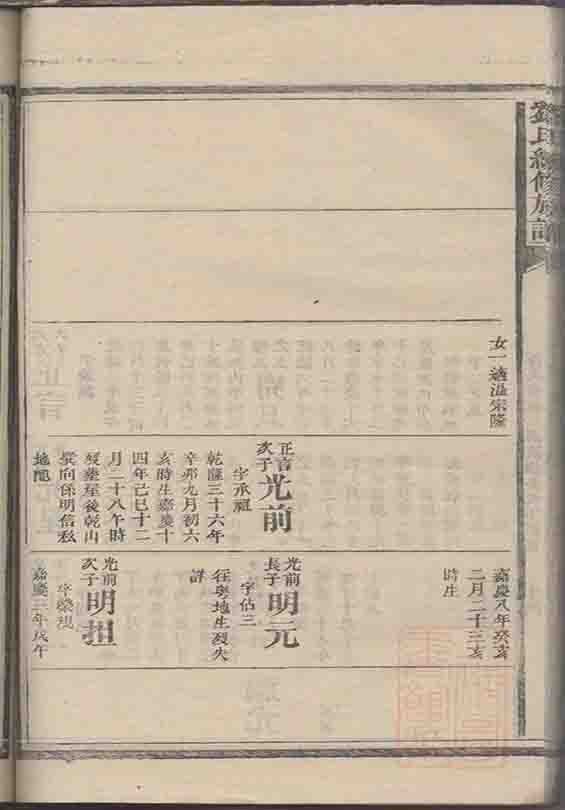 劉氏續修族譜
女一適溫宗隆
正音次子光前
字承祖
乾隆三十六年
辛卯九月初六
亥時生嘉慶十
四年己巳十二
月二十八午時
歿葬屋後乾山
巽向係明信私
地
嘉慶八年癸亥
二月二十三亥
時生
光前長子明元
字佔三
往粵地生歿失
詳
光前次子明担
字榮
嘉慶三年戊午